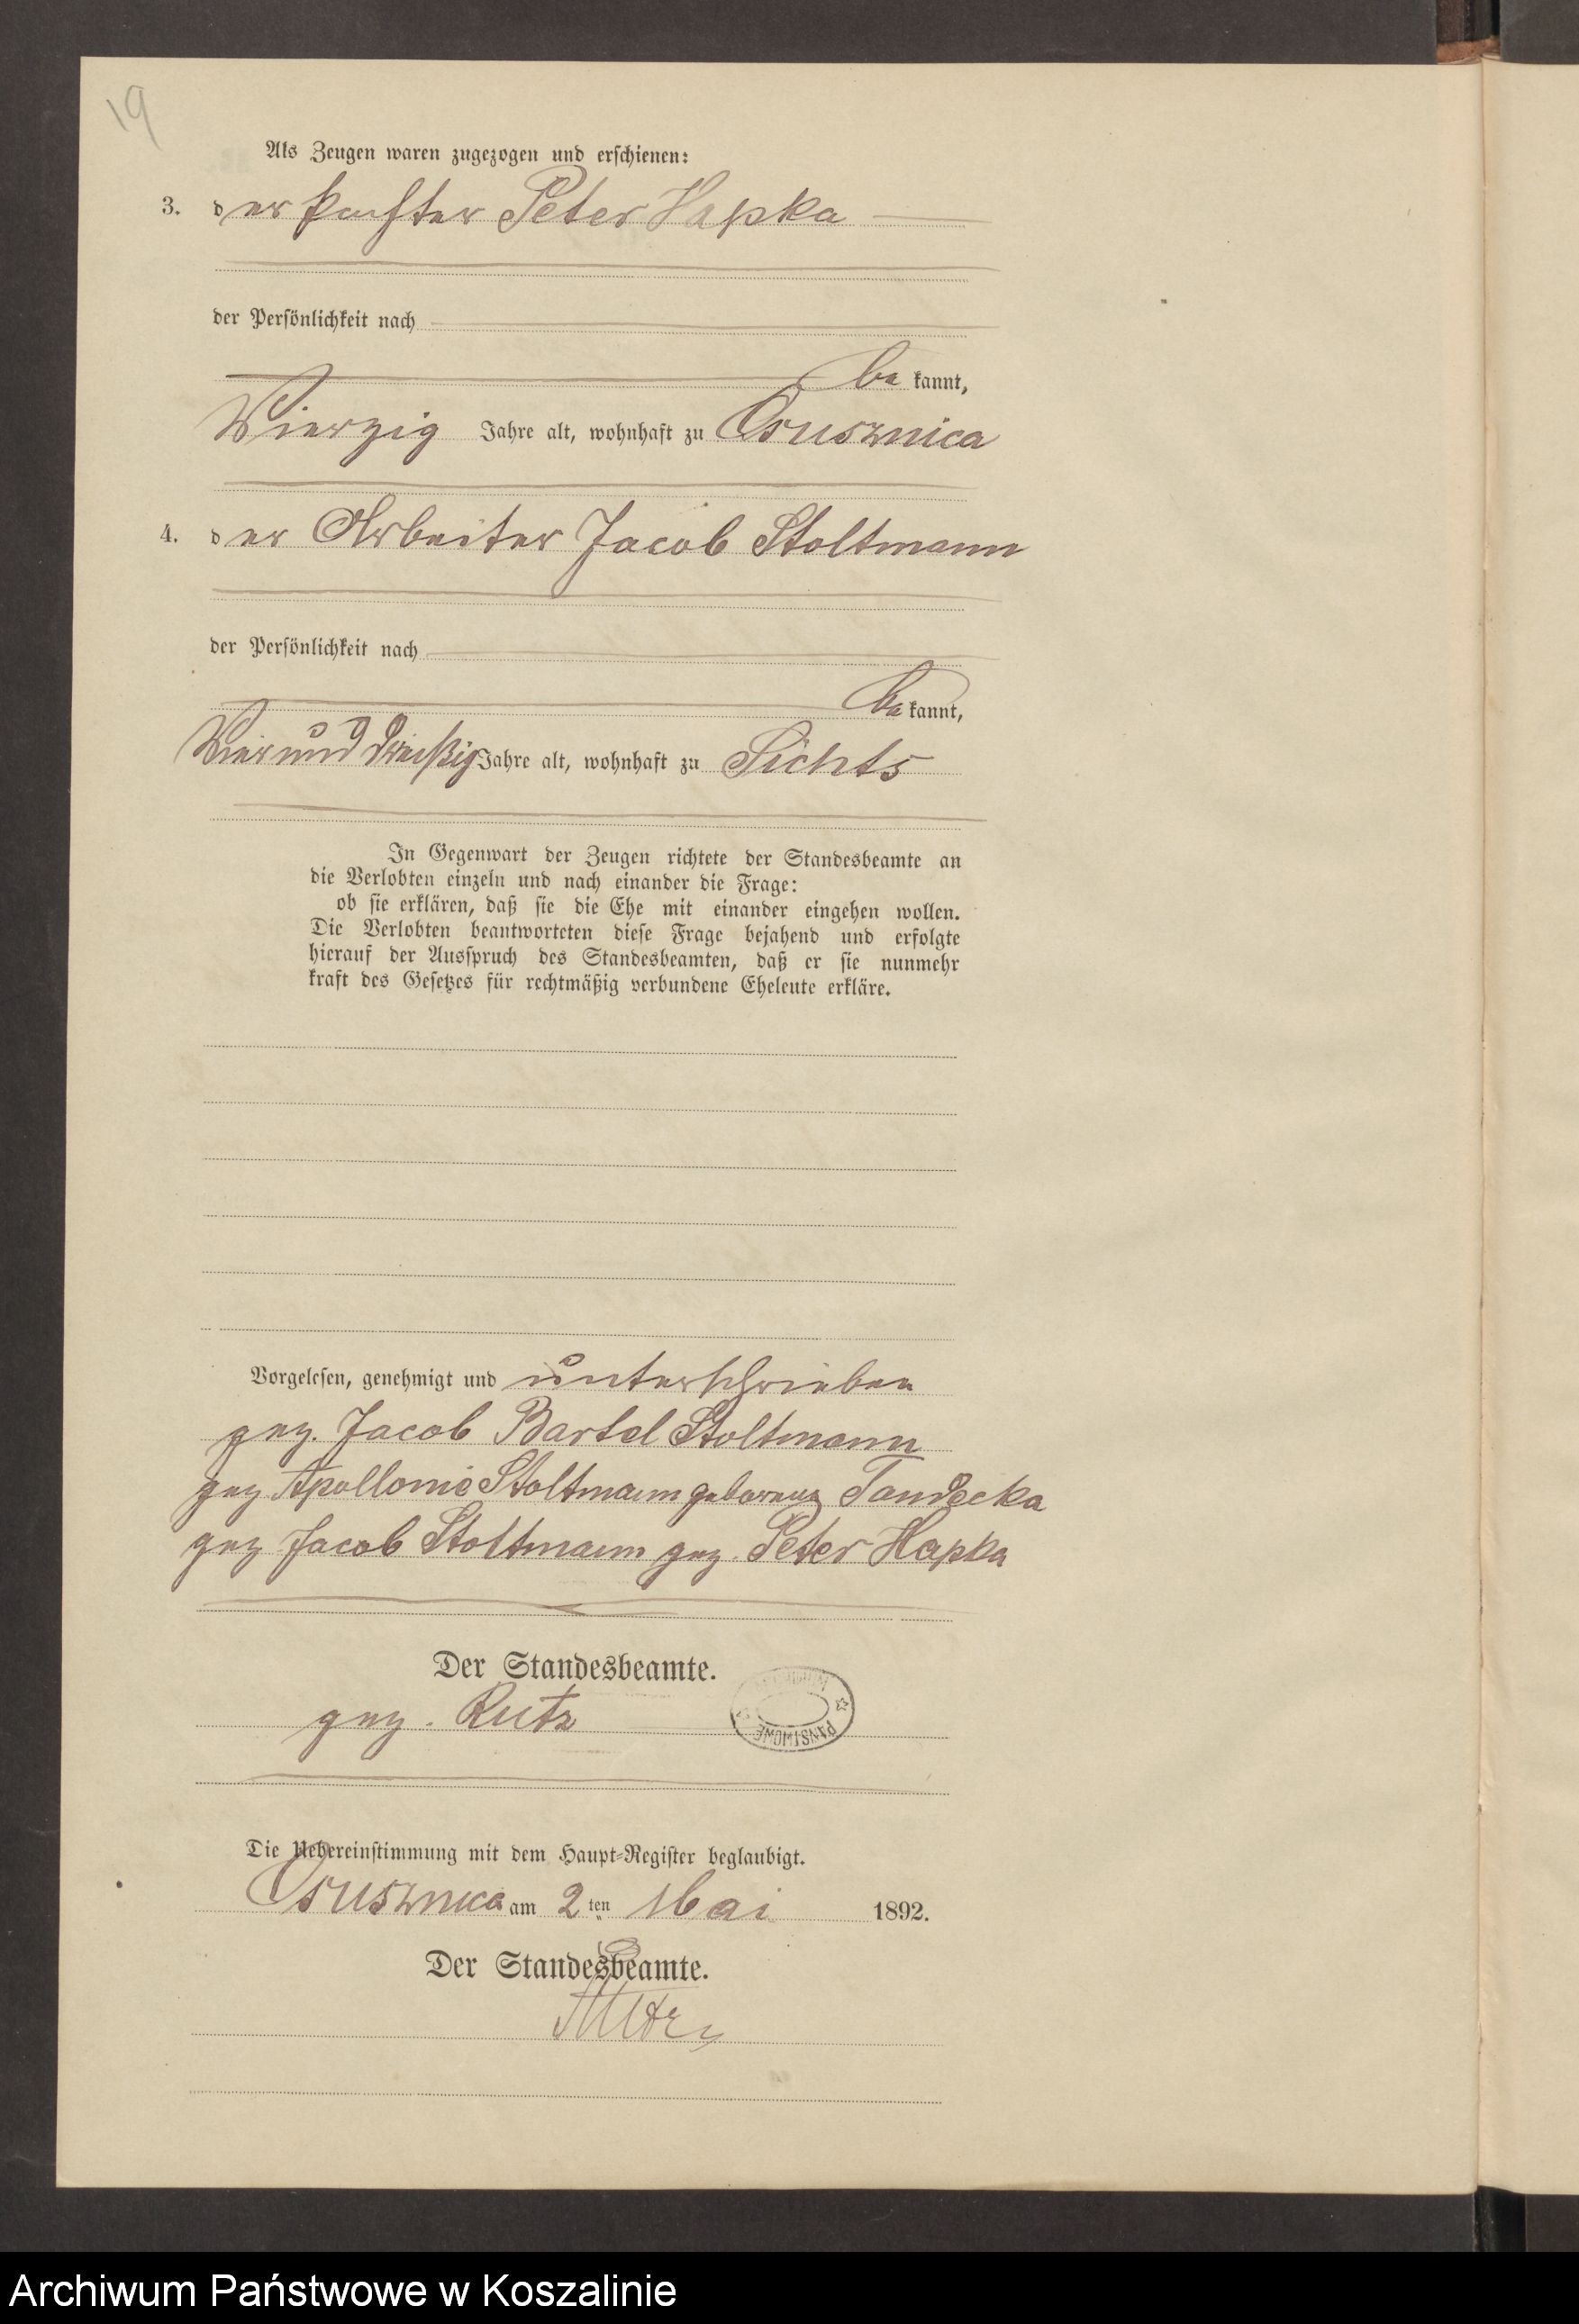 19
Als Zeugen waren zugezogen und erschienen:
3. der Pächter Peter Hapka
der Persönlichkeit nach
bekannt,
Vierzig Jahre alt, wohnhaft zu Osusznica
4. der Arbeiter Jacob Stoltmann
der Persönlichkeit nach
bekannt,
Vierund dreißig Jahre alt, wohnhaft zu Sichts
In Gegenwart der Zeugen richtete der Standesbeamte an
die Verlobten einzeln und nach einander die Frage:
ob sie erklären, daß sie die Ehe mit einander eingehen wollen.
Die Verlobten beantworteten diese Frage bejahend und erfolgte
hierauf der Ausspruch des Standesbeamten, daß er sie nunmehr
kraft des Gesetzes für rechtmäßig verbundene Eheleute erkläre.
Vorgelesen, genehmigt und unterschrieben
gez. Jacob Bartel Stoltmann
gez Apollonie Stoltmann geborene Tandecka
gez Jacob Stoltmann gez. Peter Hapka
Der Standesbeamte.
gez. Rutz
Die Uebereinstimmung mit dem Haupt-Register beglaubigt.
Osusznica am 2ten Mai 1892.
Der Standesbeamte.
Rutz
Archiwum Państwowe w Koszalinie